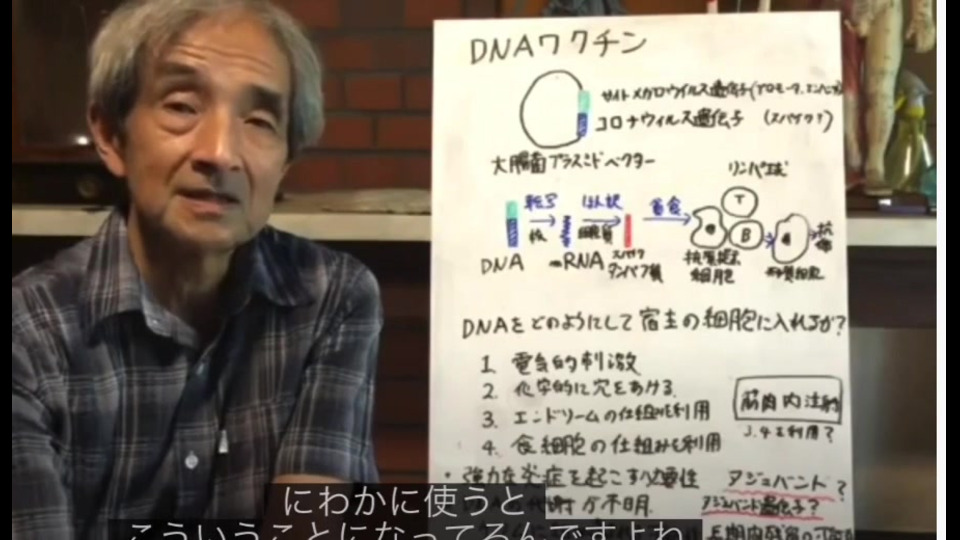 DNAワクチン
サイトメガロウイルス遺伝子(プロモータ、エンハンサ
コロナウィルス遺伝子 (スパイク?)
大腸菌プラスミドベクター
リンパ球
転写 ほん訳 貪食
T
核 細胞質
B
抗体
DNA mRNA スパイクタンパク質
抗原提示細胞
形質細胞
DNAをどのようにして宿主の細胞に入れるか?
1. 電気的刺激
2. 化学的に穴をあける
3. エンドソームの仕組みを利用
筋肉内注射
3.4を利用?
4. 食細胞の仕組みを利用
・強力な炎症を起こす必要性 アジュバント?
が不明. アジュバント遺伝子?
にわかに使うと
こういうことになってるんですよね